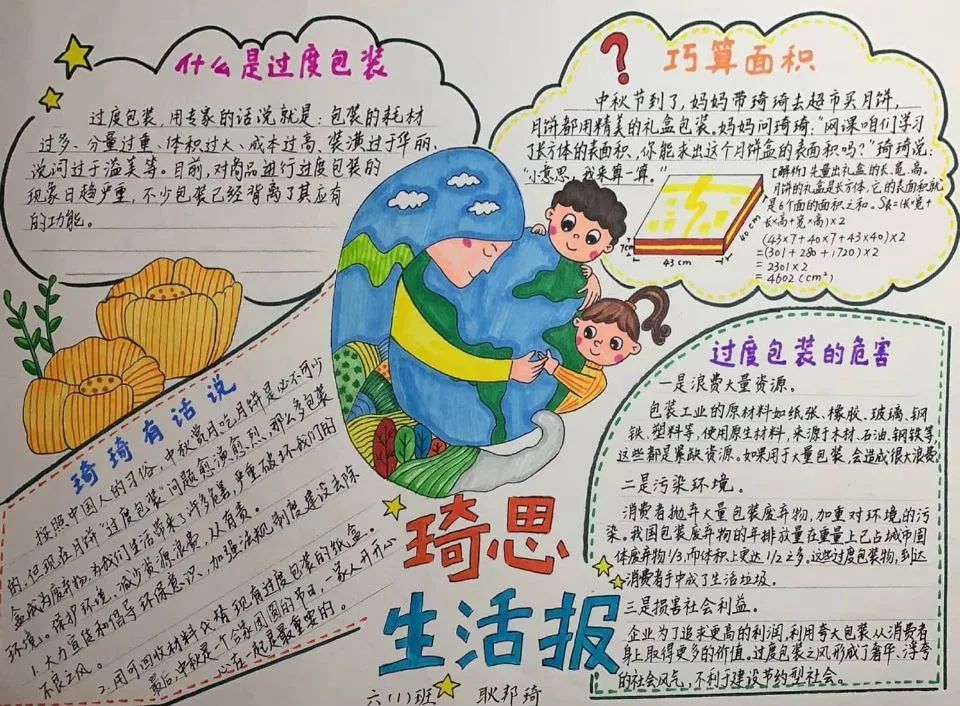 什么是过度包装
过度包装,用专家的话说就是:包装的耗材
过多、分量过重、体积过大、成本过高、装潢过于华丽、
说词过于溢美等。目前,对商品进行过度包装的
现象日趋严重,不少包装已经背离了其应有
的功能。
?
巧算面积
中秋节到了,妈妈带琦琦去超市买月饼,
月饼都用精美的礼盒包装。妈妈问琦琦:“网课咱们学习
了长方体的表面积,你能求出这个月饼盒的表面积吗?”琦琦说:
“小意思,我来算一算。”
【解析】先量出礼盒的长、宽、高。
月饼的礼盒是长方体,它的表面积就
是6个面的面积之和。S长=(长×宽+
长×高+宽×高)×2
(43×7+40×7+43×40)×2
=(301+280+1720)×2
=2301×2
=4602(cm²)
7cm
43cm
40cm
琦琦有话说
按照中国人的习俗,中秋赏月吃月饼是必不可少
的,但现在月饼“过度包装”问题愈演愈烈,那么多包装
盒成为废弃物,为我们生活带来了许多危害,严重破坏我们的
环境。保护环境、减少资源浪费,从有责。
1、大力宣传和倡导环保意识,加强法规制度建设去除
不良之风。
2、用可回收材料代替现有过度包装的纸盒。
最后,中秋是一个合家团圆的节日,一家人开开心
心在一起是最重要的。
过度包装的危害
一是浪费大量资源。
包装工业的原材料如纸张、橡胶、玻璃、钢
铁、塑料等,使用原生材料,来源于木材、石油、钢铁等,
这些都是紧缺资源。如果用于大量包装,会造成很大浪费
二是污染环境。
消费者抛弃大量包装废弃物,加重对环境的污
染。我国包装废弃物的年排放量在重量上已占城市固
体废弃物1/3,而体积上更达1/2之多。这些过度包装物,到达
消费者手中成了生活垃圾。
三是损害社会利益。
企业为了追求更高的利润,利用夸大包装从消费者
身上取得更多的价值。过度包装之风形成了奢华、浮夸
的社会风气,不利于建设节约型社会。
琦思
生活报
六(1)班 耿邦琦